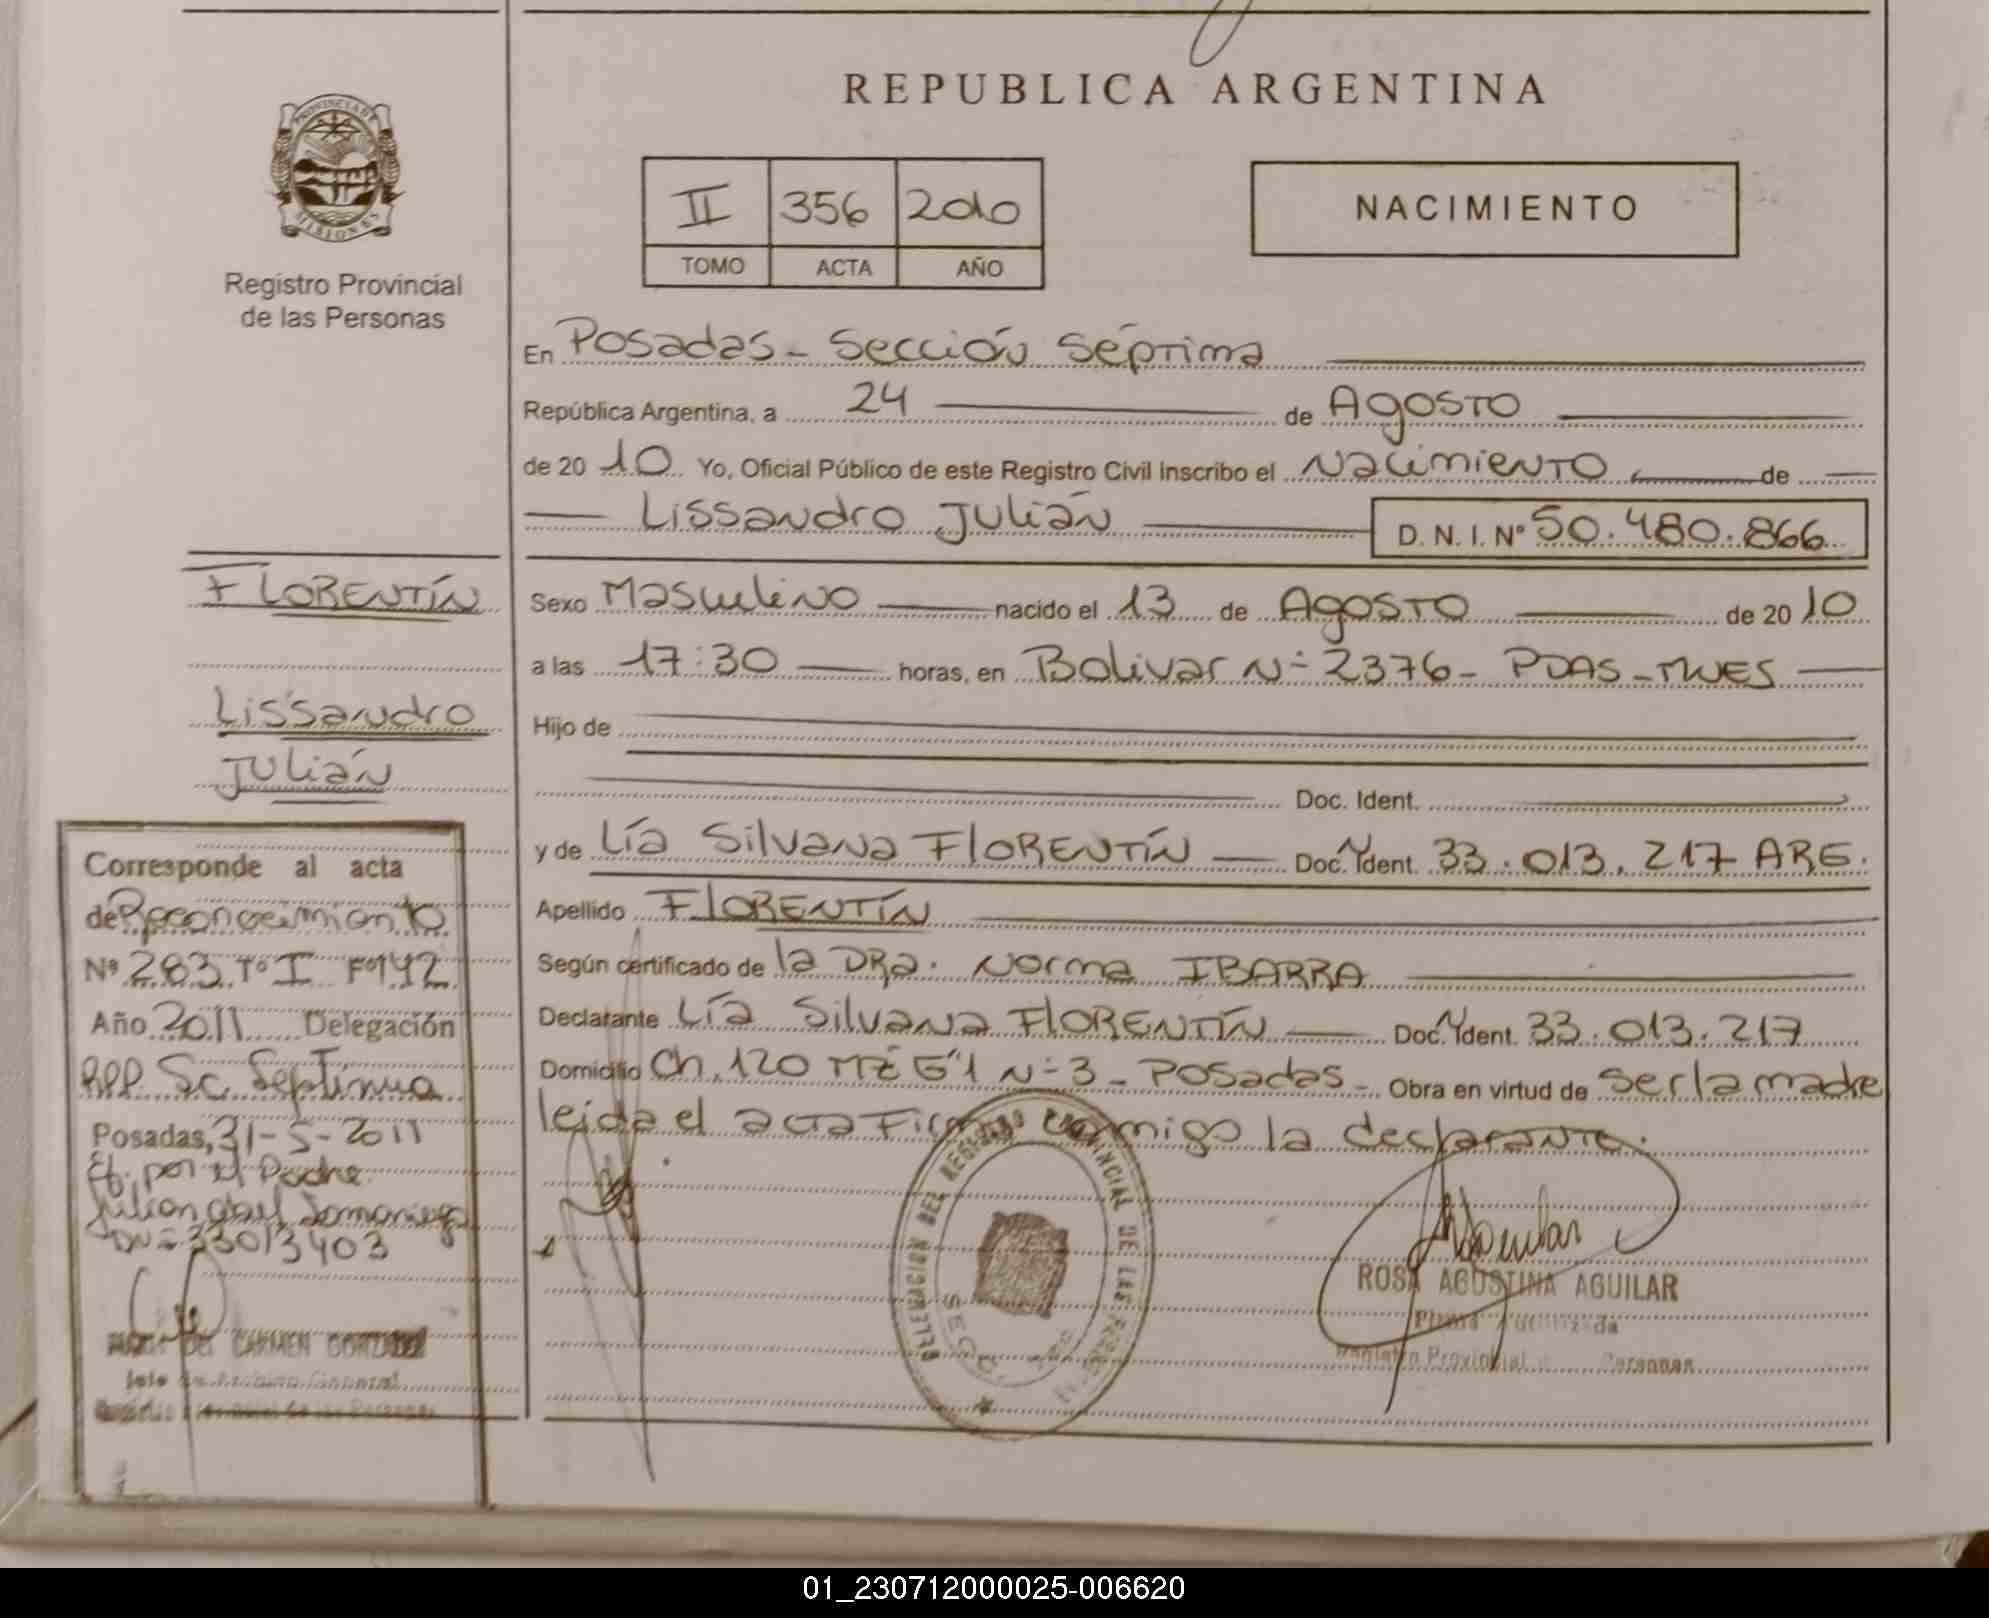 REPUBLICA ARGENTINA
PROVINCIA DE
MISIONES
Registro Provincial
de las Personas
II 356 2010
TOMO ACTA AÑO
NACIMIENTO
En Posadas - Sección Séptima
República Argentina, a 24 de Agosto
de 20 10 Yo, Oficial Público de este Registro Civil Inscribo el Nacimiento de
Lissandro Julián D. N. I. Nº 50.480.866
Sexo Masculino nacido el 13 de Agosto de 20 10
a las 17:30 horas, en Bolivar Nº 2376 - PDAS - MNES
Hijo de
Doc. Ident.
y de Lía Silvana FLORENTÍN Doc. Ident. 33.013.217 ARG.
Apellido FLORENTÍN
Según certificado de la DRa. Norma IBARRA
Declarante Lía Silvana FLORENTÍN Doc. Ident. 33.013.217
Domicilio Ch. 120 Nº 3 - Posadas - Obra en virtud de ser la madre
leída el acta firma conmigo la declarante.
FLORENTÍN
Lissandro
Julián
Corresponde al acta
de Reconocimiento
Nº 283 Tº I Fº 142
Año 2011 Delegación
RPP Sc. Septima
Posadas, 31-5-2011
por el Padre
33013403
DEL CARMEN
DELEGACION DEL REGISTRO PROVINCIAL DE LAS
ROSA AGUSTINA AGUILAR
Firma Autorizada
Registro Provincial Personas
01_230712000025-006620